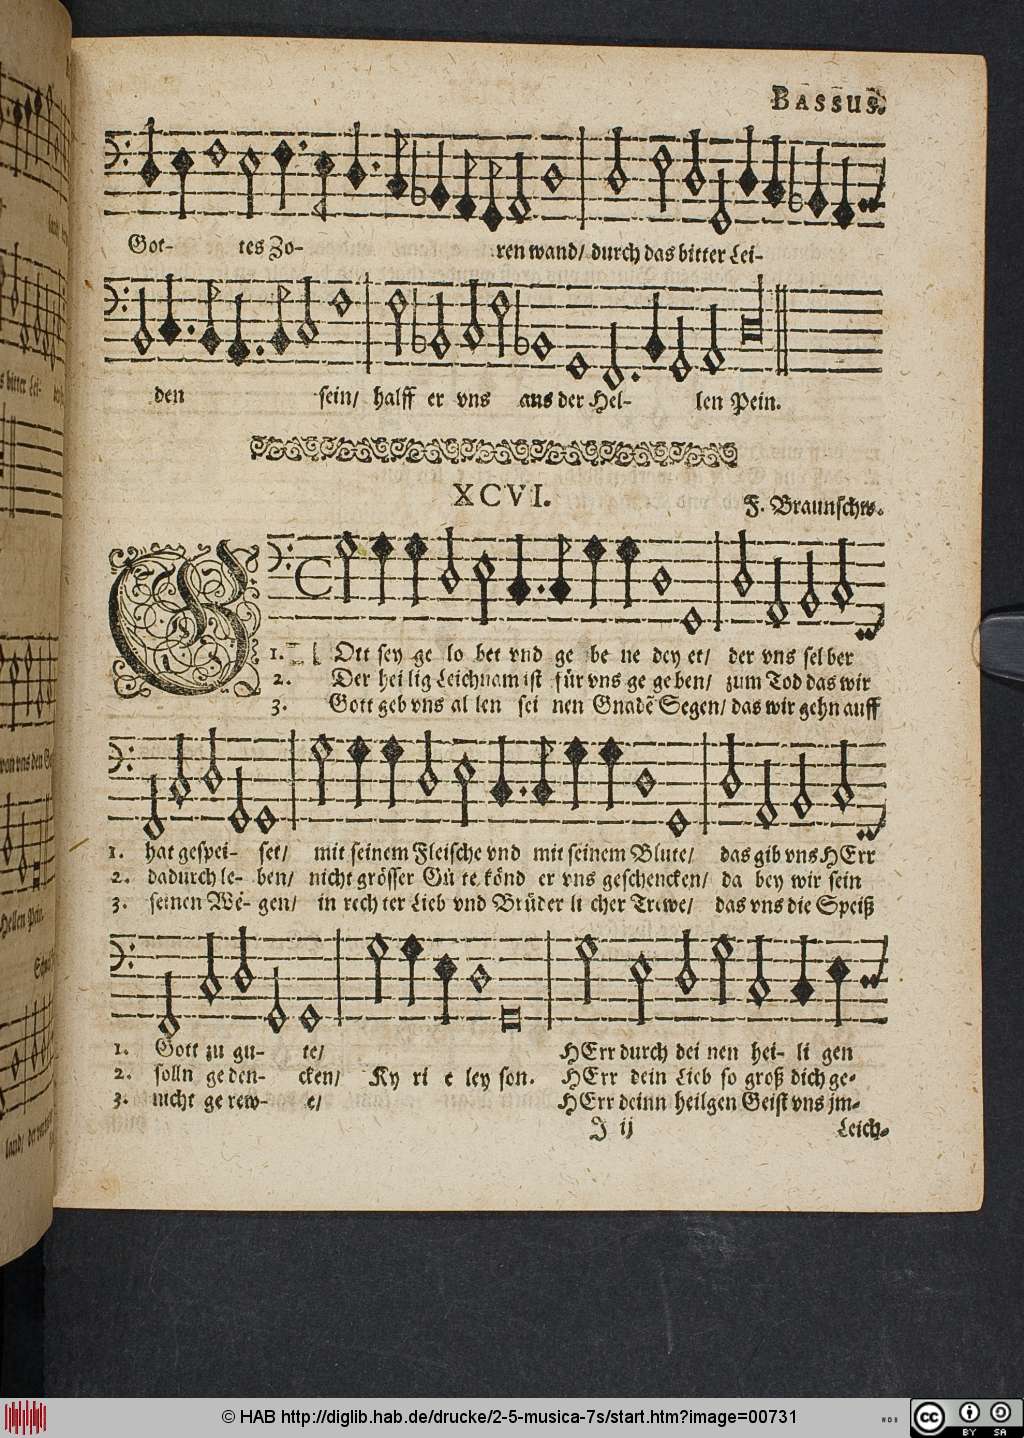 BASSUS.
Got- tes Zo- ren wand/ durch das bitter Lei-
den sein/ halff er vns aus der Hel- len Pein.
XCVI.
F. Braunschw.
G
1. Ott sey ge lo bet vnd ge be ne dey et/ der vns sel ber
2. Der hei lig Leichnam ist für vns ge ge ben/ zum Tod das wir
3. Gott geb vns al len sei nen Gnadẽ Segen/ das wir gehn auff
1. hat gespei- set/ mit seinem Fleische vnd mit seinem Blute/ das gib vns HErr
2. dadurch le- ben/ nicht grösser Gü te könd er vns geschencken/ da bey wir sein
3. seinen We- gen/ in rech ter Lieb vnd Brüder li cher Trewe/ das vns die Speiß
1. Gott zu gu- te/ HErr durch dei nen hei- li gen
2. solln ge den- cken/ Ky ri e ley son. HErr dein Lieb so groß dich ge-
3. nicht ge rew- e/ HErr deinn heilgen Geist vns jm-
J ij Leich-
© HAB http://diglib.hab.de/drucke/2-5-musica-7s/start.htm?image=00731
WDB
cc BY SA